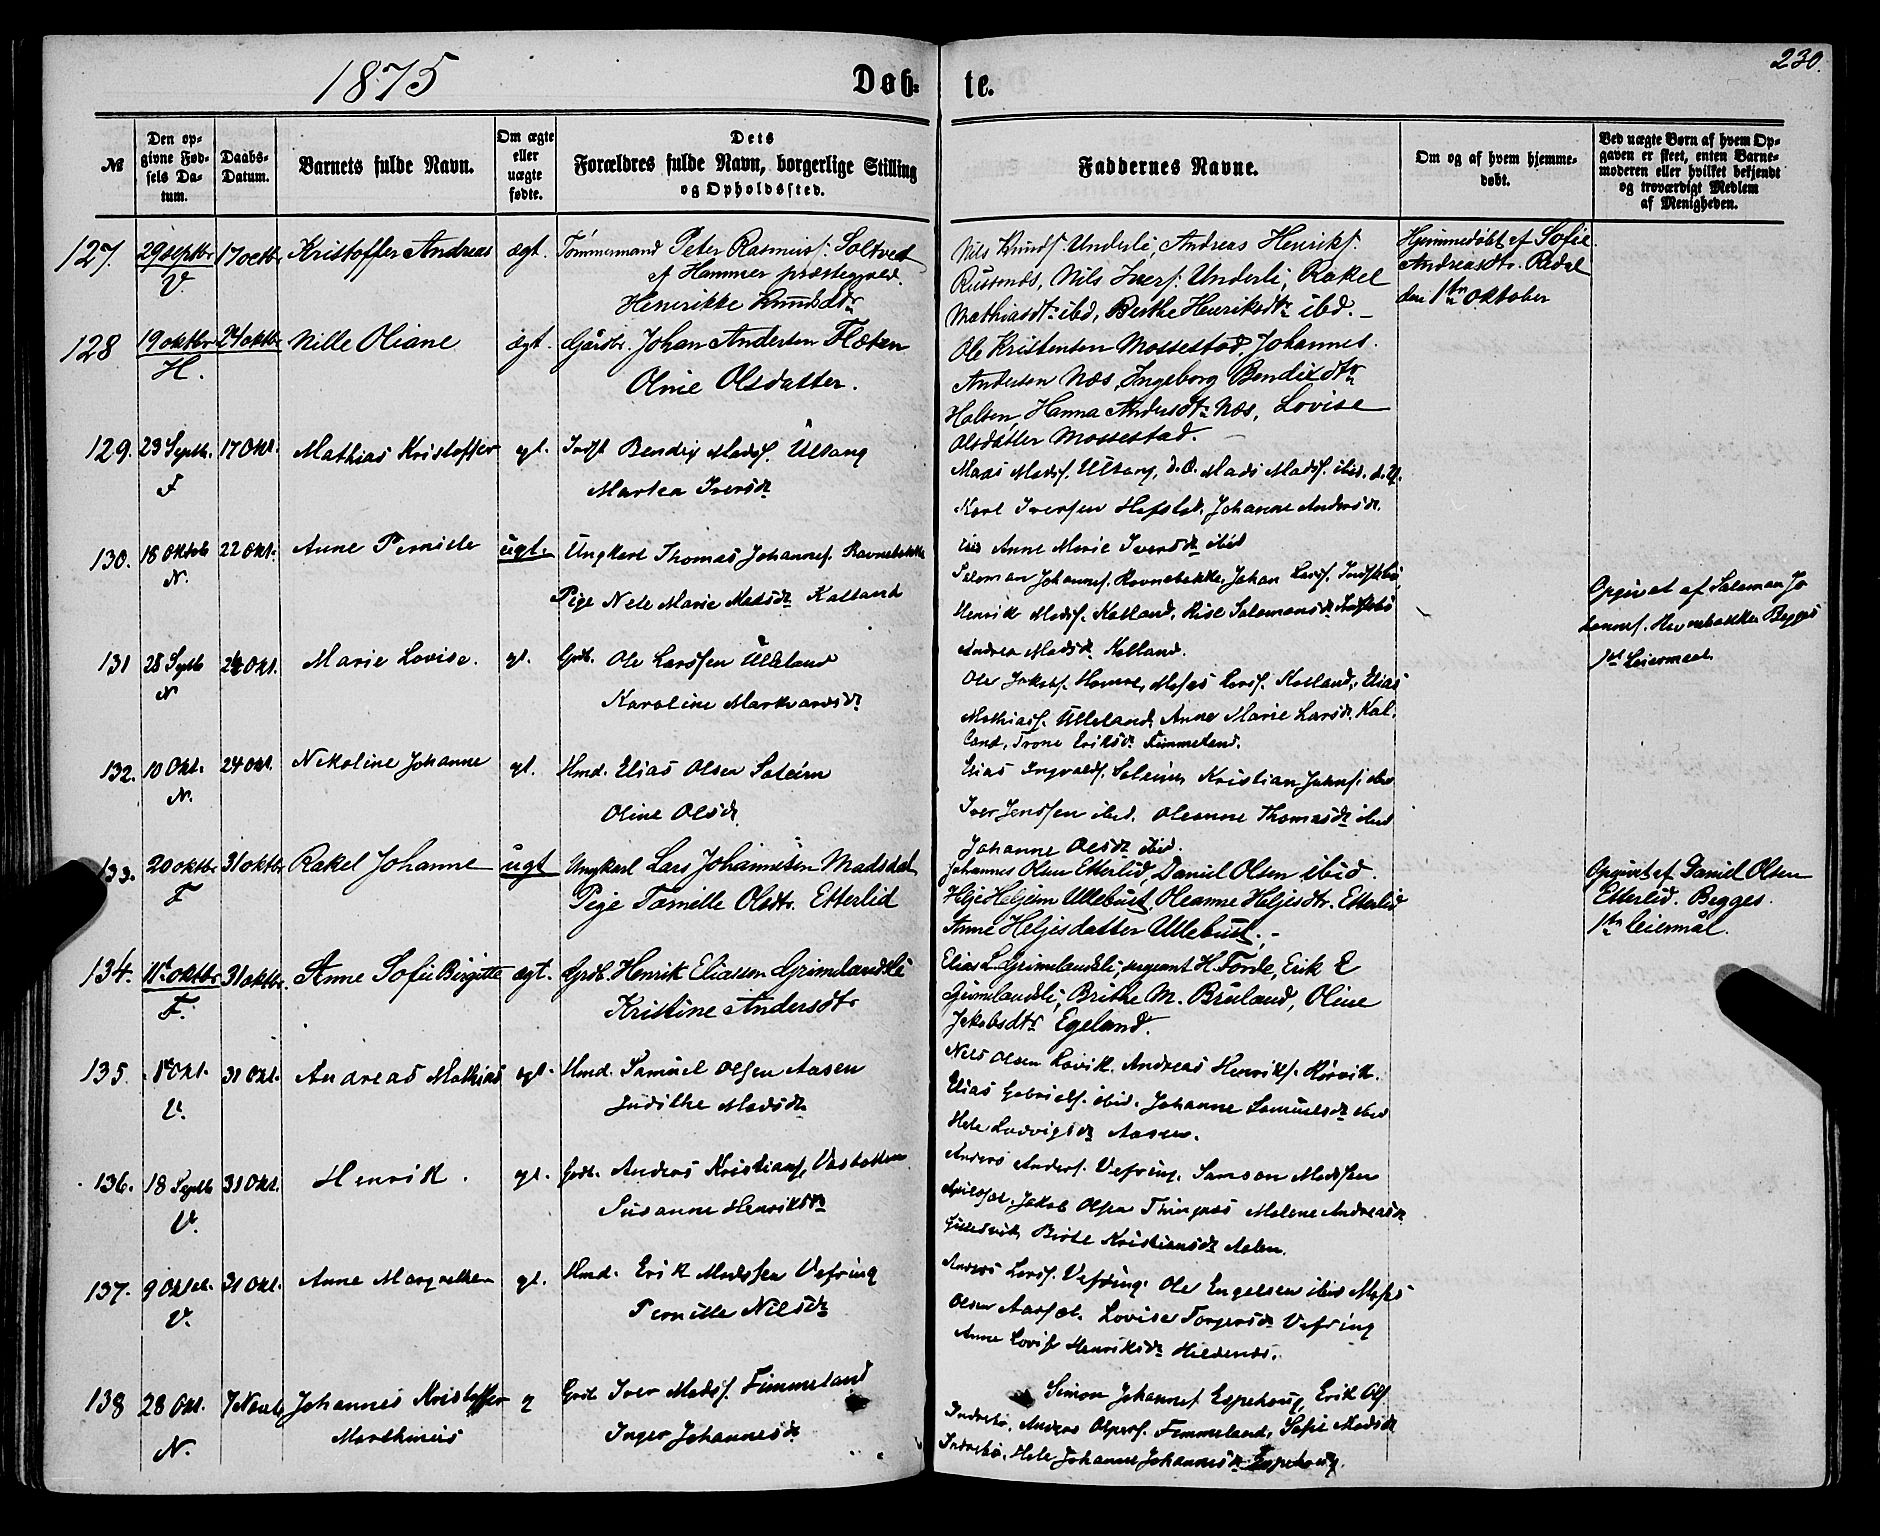 1875
Døb-
te.
230.
№
Den op-
givne Fød-
sels Da-
tum.
Daabs-
Datum.
Barnets fulde Navn.
Om ægte
eller
uægte
fødte.
Dets
Forældres fulde Navn, borgerlige Stilling
og Opholdssted.
Faddernes Navne.
Om og af hvem hjemme-
døbt.
Ved uægte Børn af hvem Op-
gaven er skeet, enten Barne-
moderen eller hvilket bekjendt
og troværdigt Medlem
af Menigheden.
127. 29 septbr 17 octbr Kristoffer Andreas ægt. Tømmermand Peter Rasmuss. Soltvedt
V. af Hammer præstegjeld.
Henrikke Knudsdtr
Nils Knuds. Underli, Andreas Henriks.
Nils Ivers. Underli, Rakel
Mathiasdtr ibid, Berthe Henriksdtr ibid. –
Hjemmedøbt af Sofie
Andreasdtr. Redal
den 1ste oktober
128 19 oktbr 24 oktbr Nille Oliane ægt. Gårdbr. Johan Andersen Flæten
H. Oline Olsdatter.
Ole Kristensen Mossestad, Johannes
Andersen Næs, Ingeborg Bendixdtr
Halsen, Hanna Andersdtr Næs, Lovise
Olsdatter Mossestad.
129. 23 Septb. 17 Okt. Mathias Kristoffer egt. Indst Bendix Mads. Ullang
F Martea Iversdr
Mads Mads. Ullang, d.Æ. Mads Mads. ibid. d.Y.
Karl Iversen Hafstad. Johanne Andersdr.
ibid Anne Marie Iversdr ibid
130. 18 Oktob 22 Okt. Anne Pernille ugt. Ungkarl Thomas Johannes. Ravnebakke
N. Pige Nele Marie Madsdr Kalland
Salomon Johannes. Ravnebakke, Johan Lars. Indrebø,
Henrik Mads. Kalland, Lise Salamonsdr Indrebø
Andrea Madsdr Kalland.
Opgivet af Salamon Jo
hannes. Ravnebakke Begges
1ste Leiermaal
131 28 Septb 24 Okt. Marie Lovise. gt. Grdb. Ole Larssen Ulleland
N Karoline Markvardsdr
Ole Jakobs. Moses Lars. Kalland, Elias
Mathias. Ulleland, Anne Marie Larsdr. Kal-
land, Trone Eriksdr Fimmeland.
132. 10 Okt. 24 Okt. Nikoline Johanne gt. Hmd. Elias Olsen Soleim
N. Oline Olsdr.
Elias Ingvalds. Soleim, Kristian Johns. ibid
Iver Jenssen ibid. Oleanne Thomasdr ibid
Johanne Olsdr ibid.
133. 20 oktbr 31 oktbr Rakel Johanne ugt Ungkarl Lars Johannesen Madsdal
F Pige Pernille Olsdtr. Etterlid
Johannes Olsen Etterlid, Daniel Olsen ibid.
Helje Heljesen Ullebust, Oleanne Heljesdtr. Etterlid
Anne Heljesdatter Ullebust. –
Opgivet af Daniel Olsen
Etterlid. Begges
1ste leiermål.
134. 11te oktbr 31 oktbr. Anne Sofie Birgitte ægt. Grdb. Henrik Eliassen Grimelandsli
F. Kristine Andersdtr
Elias L. Grimelandsli, sergeant H. Førde, Erik E
Grimelandsli, Brithe M. Bruland, Oline
Jakobsdtr Egeland.
135. 1ste Okt. 31 Okt. Andreas Mathias egt. Hmd. Samuel Olsen Aasen
V. Judithe Madsdr
Nels Olsen Lavik. Andreas Henriks. Rørvik.
Elias Gabriels. ibid. Johanne Samuelsdr ibid
Hele Ludvigsdr Aasen.
136. 18 Septb 31 Okt. Henrik. gt. Grdb. Anders Kristians. Vaslotten
V. Susanne Henriksdr
Anders Anders. Vefring, Samson Madssen
Jakob Olsen Tingnæs Malene Andreasdr
Birte Kristiansdr Aalen.
137. 9 Oktob. 31 Okt. Anne Margrethe gt. Hmd. Erik Madssen Vefring
V. Pernille Nilsdr
Anders Lars. Vefring. Ole Engelsen ibid Moses
Olsen Aarsæt. Lovise Torgersdr Vefring
Anne Lovise Henriksdr Hildenes.
138 28 Okt. 7 Novb Johannes Kristoffer g Grdb Iver Mads. Fimmeland
N. Marthinus Inger Johannesdr
Simon Johannes Espehoug, Erik Ols.
Indrebø, Anders Olpers. Fimmeland, Sofie Madsdr
Indrebø, Hele Johanne Johannesdr Espehoug.